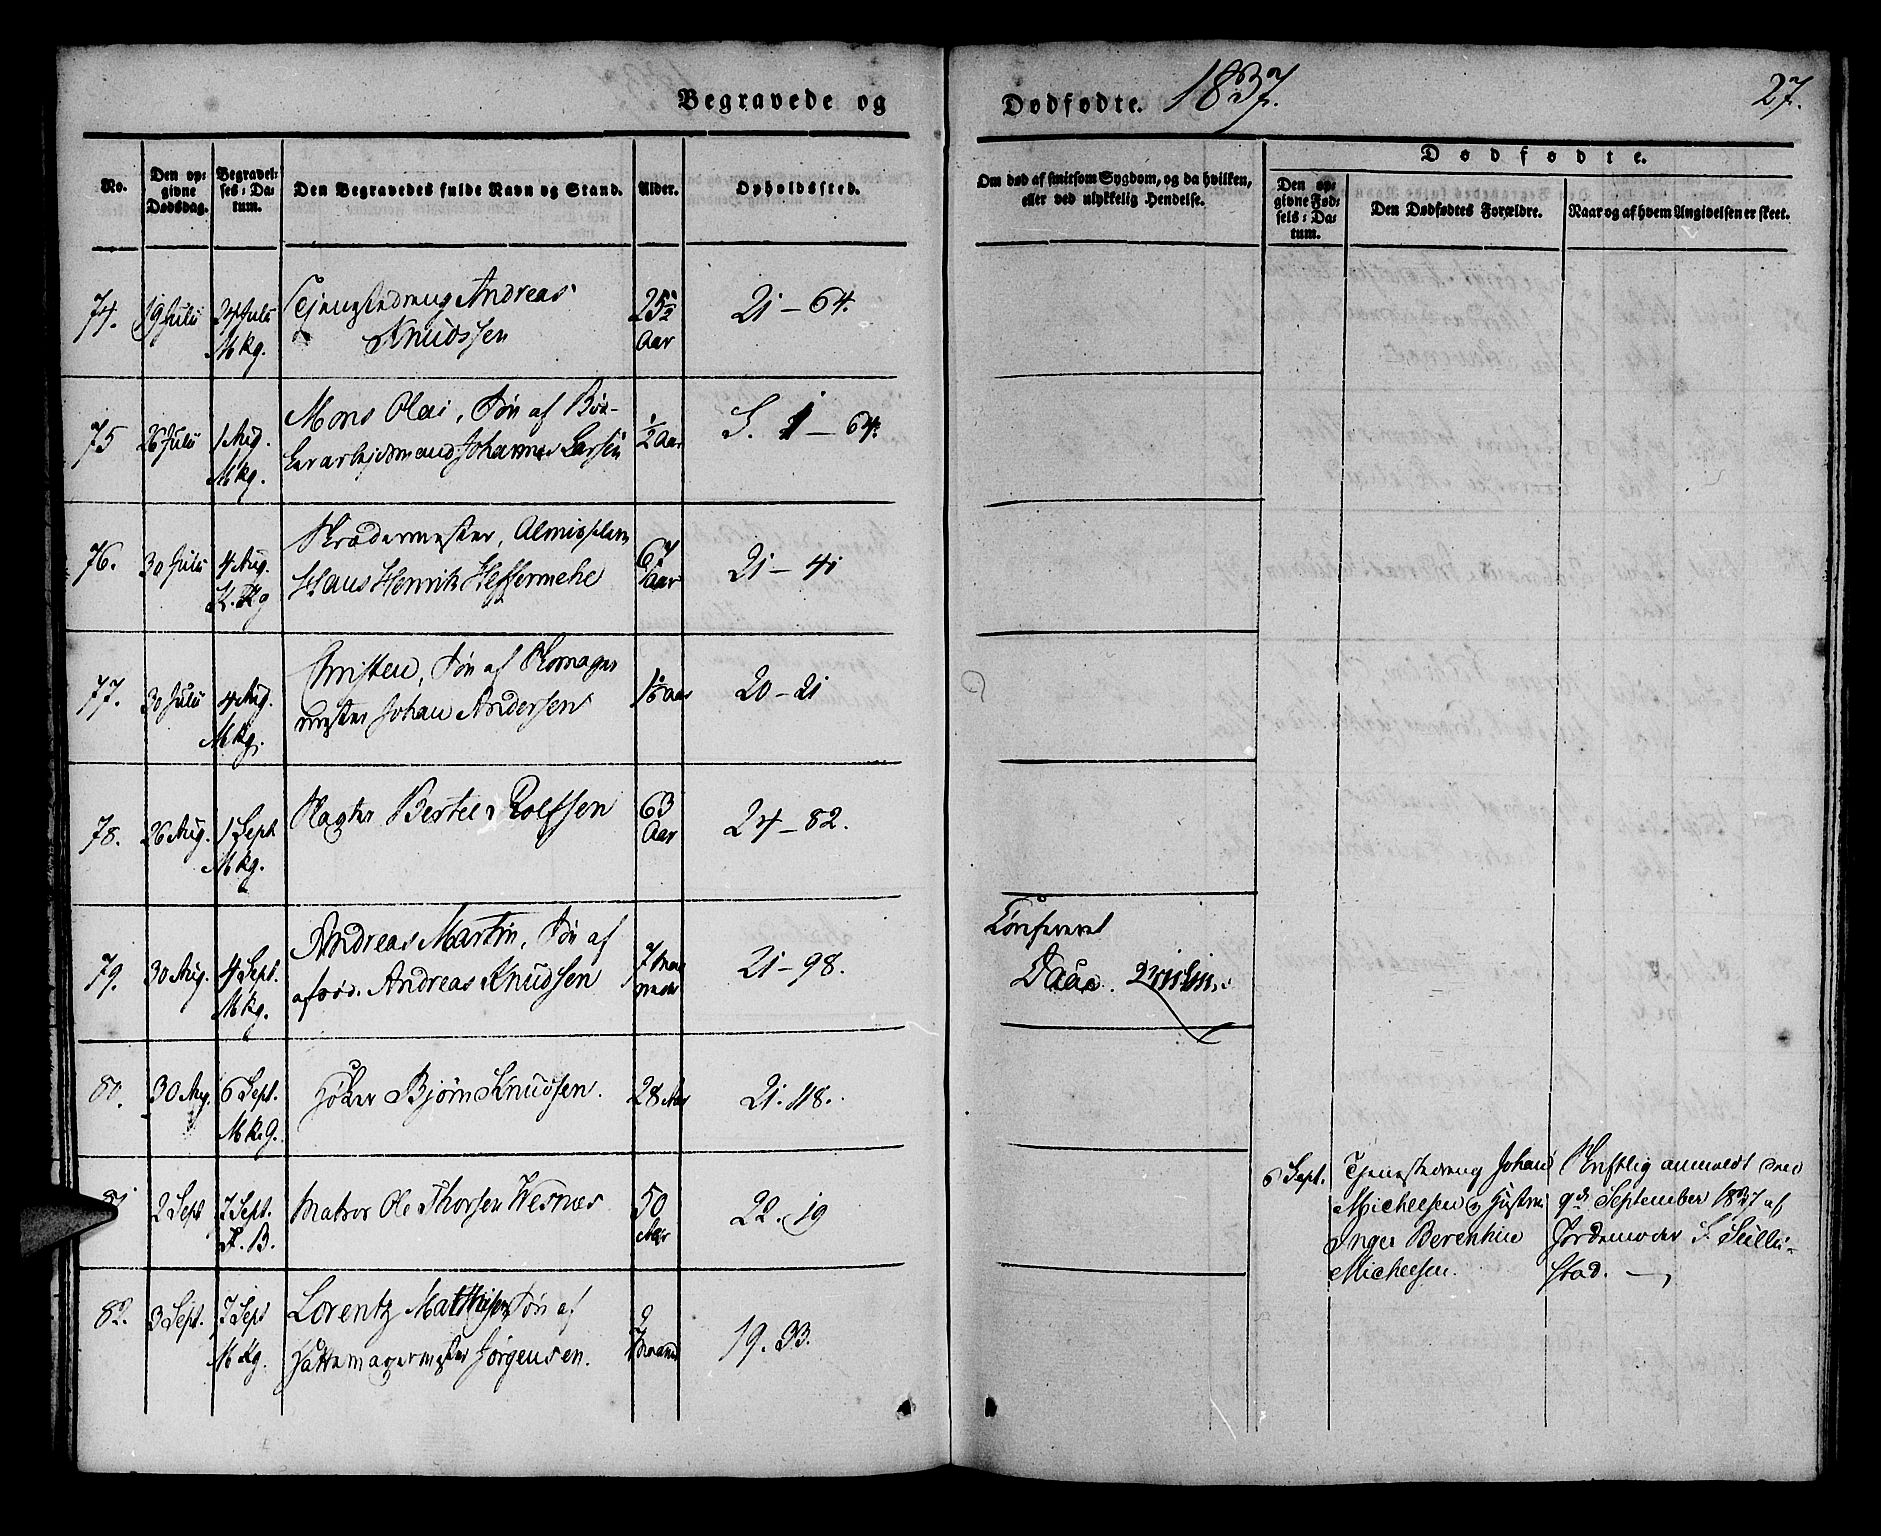 Begravede og
Dødfødte. 1837.
27.
No.
Den op-
givne
Dødsdag.
Begravel-
ses-Da-
tum.
Den Begravedes fulde Navn og Stand.
Alder.
Opholdssted.
Om død af smitsom Sygdom, og da hvilken,
eller ved ulykkelig Hendelse.
Dødfødte.
Den op-
givne Fød-
sels-Da-
tum.
Den Dødfødtes Forældre.
Naar og af hvem Angivelsen er skeet.
74. 19 Juli Juli Tjenestedreng Andreas 25½ 21 - 64.
Mkg. Knudssen Aar
75 26 Juli 1 Aug. Mons Olai, Søn af Bør- ½ Aar S. 1 - 64.
Mkg. Johannes Larsen
76. 30 Juli 4 Aug. Skrædermester, Almislem 67 21 - 41
K.Kg Hans Henrik Heffermehl Aar
77. 30 Juli 4 Aug. Christen, Søn af Skomager Aar 20 - 21
Mkg. mester Johan Andersen
78. 26 Aug. 1 Sept Slagter Bertel Rolfsen 63 24 - 82.
Mkg. Aar
79. 30 Aug. 4 Sept. Andreas Martin, Søn af 7 Maa 21 - 98.
Mkg. afdøde Andreas Knudsen neder
80. 30 Aug. 6 Sept. Høker Bjørn Knudsen. 28 Aar 21. 118.
MKG.
81 2 Sept 7 Sept. Matros Ole Thorsen Wesnæs 50 22. 19
F. B. Aar
6 Sept. Tjenestedreng Johan Skriftlig anmeldt den
Michelsen og Hustru 9de September 1837 af
Inger Berenthine Jordemoder
Michelsen. stad.
82. 3 Sept. 7 Sept Lorentz Matthis, Søn af 9 19. 33.
Mkg. Hattemagermester Jørgensen. Maaned